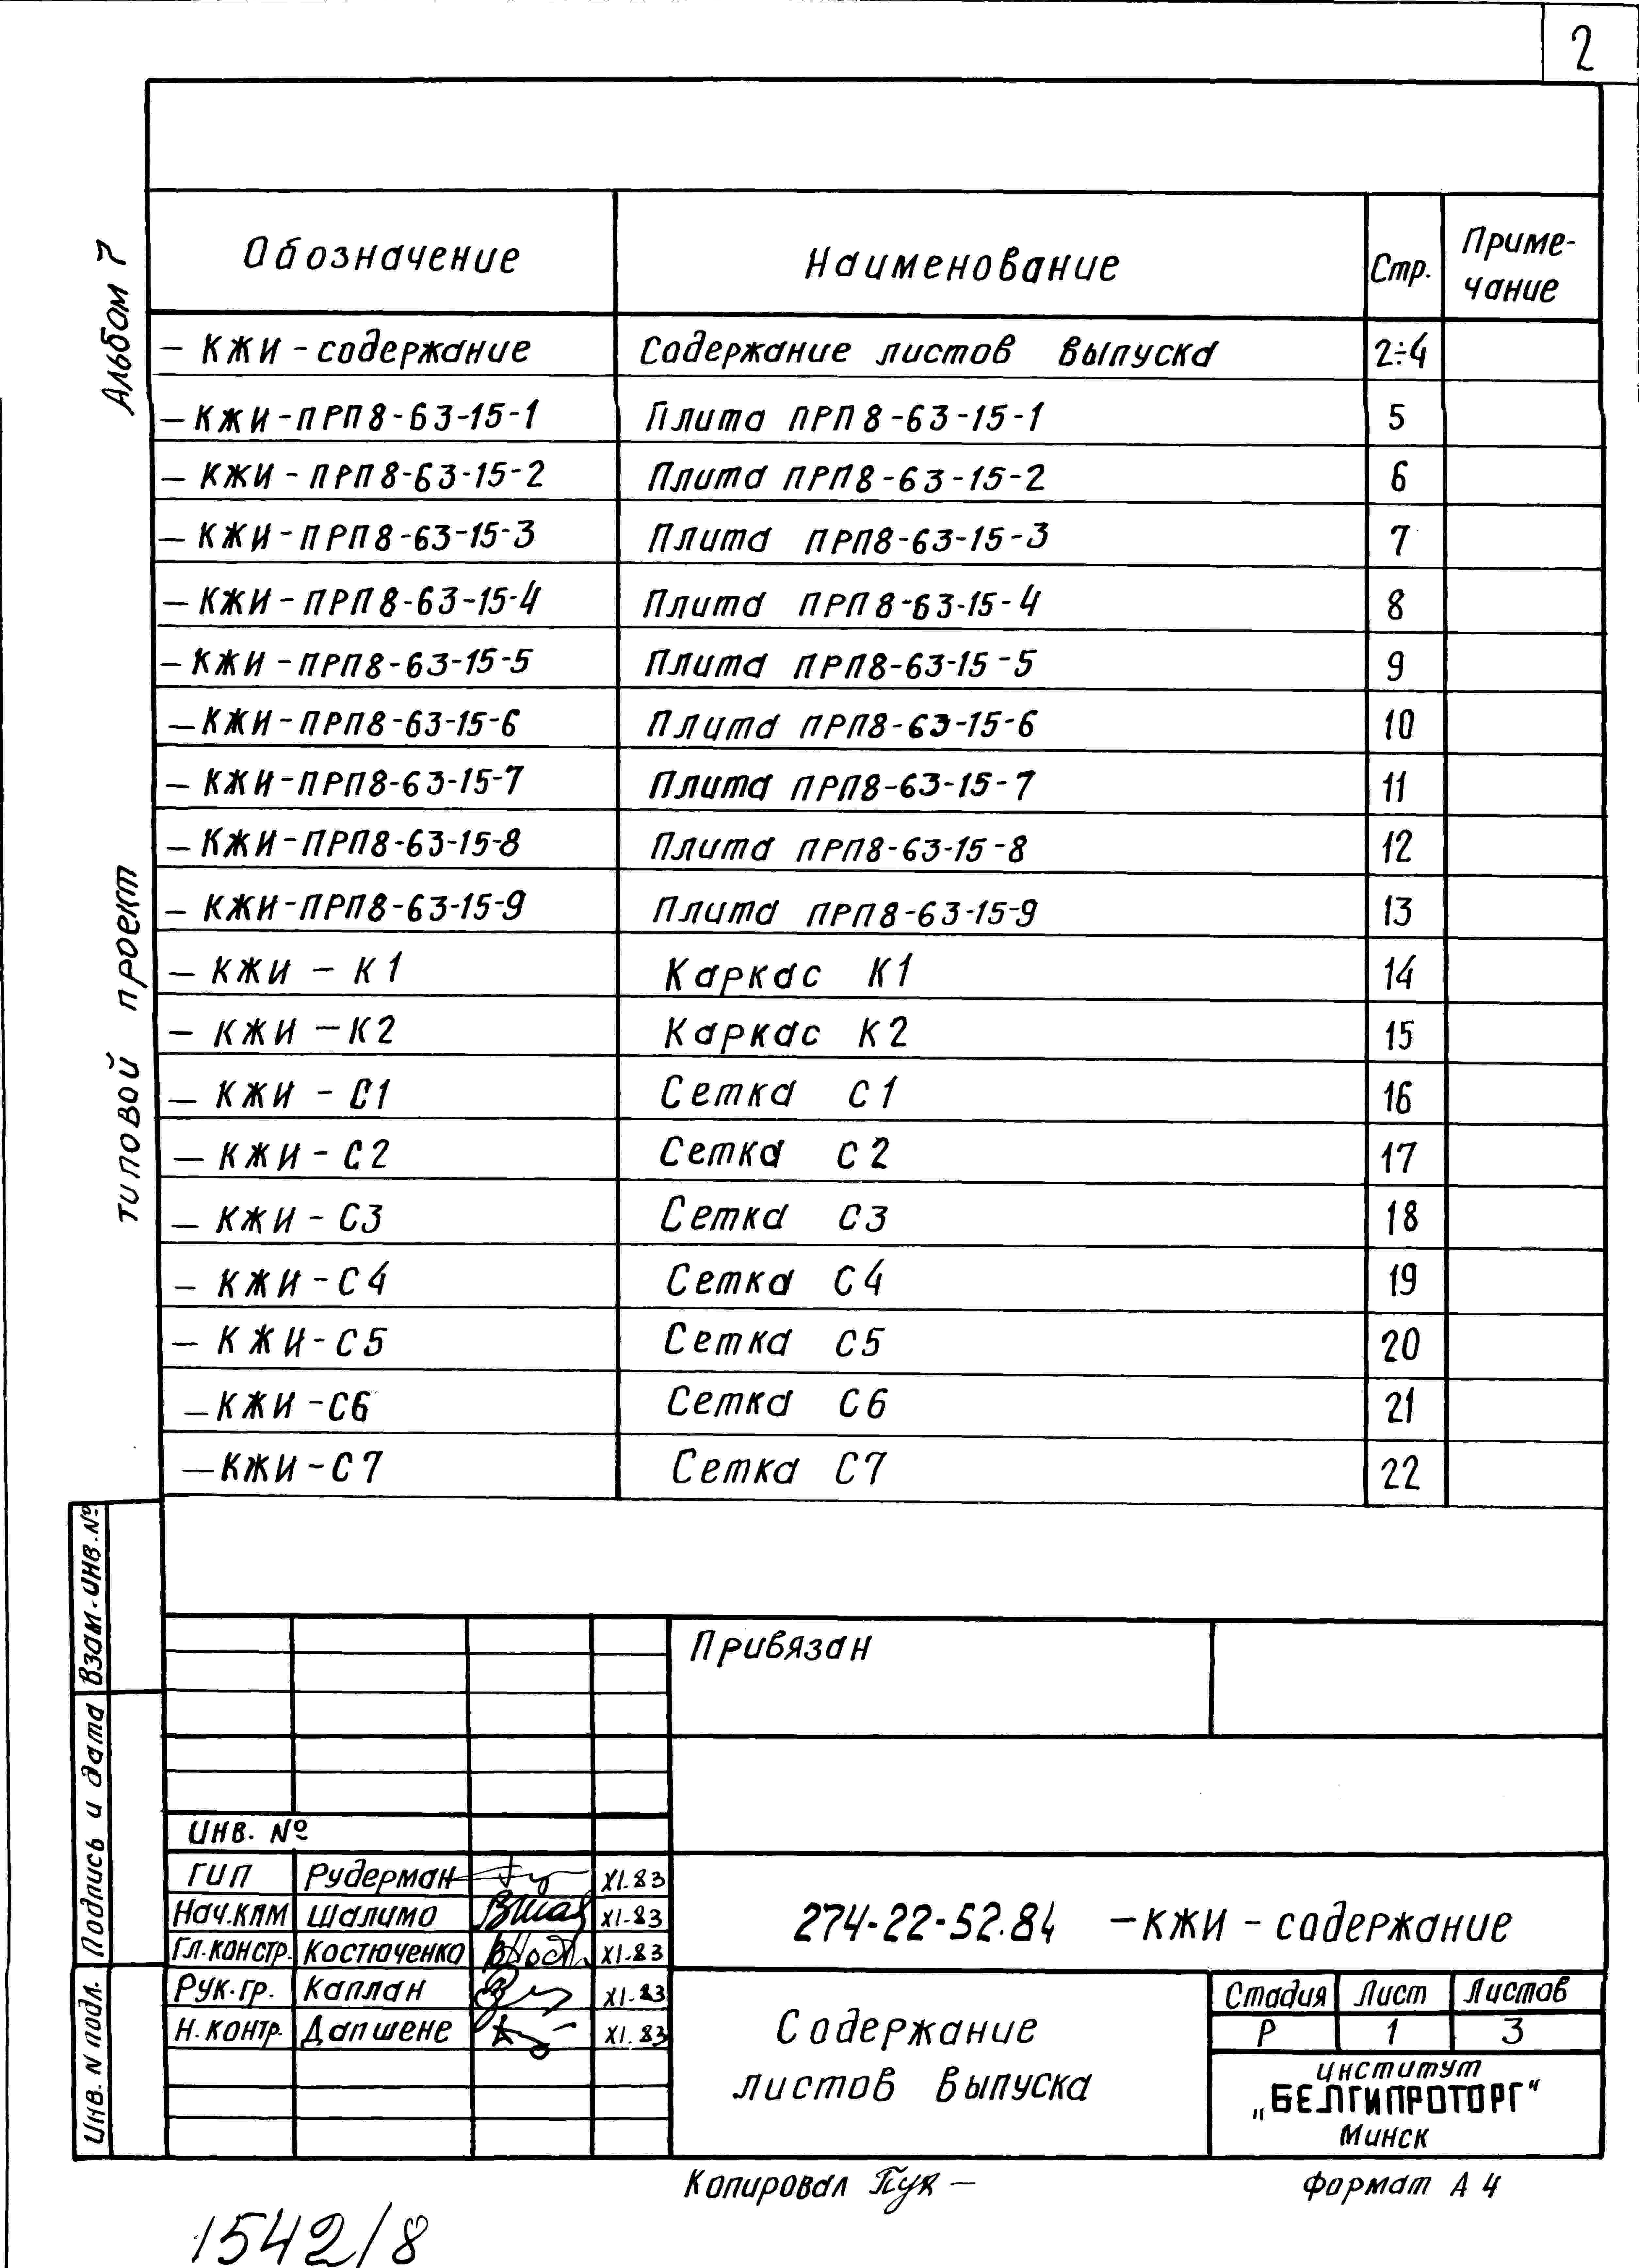 2
Альбом 7
типовой проект
Обозначение Наименование Стр. Приме-
чание
– КЖИ - содержание Содержание листов выпуска 2÷4
– КЖИ - ПРП 8-63-15-1 Плита ПРП 8-63-15-1 5
– КЖИ - ПРП 8-63-15-2 Плита ПРП 8-63-15-2 6
– КЖИ - ПРП 8-63-15-3 Плита ПРП 8-63-15-3 7
– КЖИ - ПРП 8-63-15-4 Плита ПРП 8-63-15-4 8
– КЖИ - ПРП 8-63-15-5 Плита ПРП 8-63-15-5 9
– КЖИ - ПРП 8-63-15-6 Плита ПРП 8-63-15-6 10
– КЖИ - ПРП 8-63-15-7 Плита ПРП 8-63-15-7 11
– КЖИ - ПРП 8-63-15-8 Плита ПРП 8-63-15-8 12
– КЖИ - ПРП 8-63-15-9 Плита ПРП 8-63-15-9 13
– КЖИ – К1 Каркас К1 14
– КЖИ – К2 Каркас К2 15
– КЖИ - С1 Сетка С1 16
– КЖИ - С2 Сетка С2 17
– КЖИ - С3 Сетка С3 18
– КЖИ - С4 Сетка С4 19
– КЖИ - С5 Сетка С5 20
– КЖИ - С6 Сетка С6 21
– КЖИ - С7 Сетка С7 22
Взам. инв. №
Подпись и дата
Инв. N подл.
Привязан
Инв. №
ГИП Рудерман XI.83
Нач.КПМ Шалимо XI-83
Гл.констр. Костюченко XI-83
Рук.гр. Каплан XI-83
Н.контр. Дапшене XI.83
274-22-52.84 – КЖИ - содержание
Содержание
листов выпуска
Стадия Лист Листов
Р 1 3
институт
„БЕЛГИПРОТОРГ“
Минск
Копировал
Формат А4
1542/8